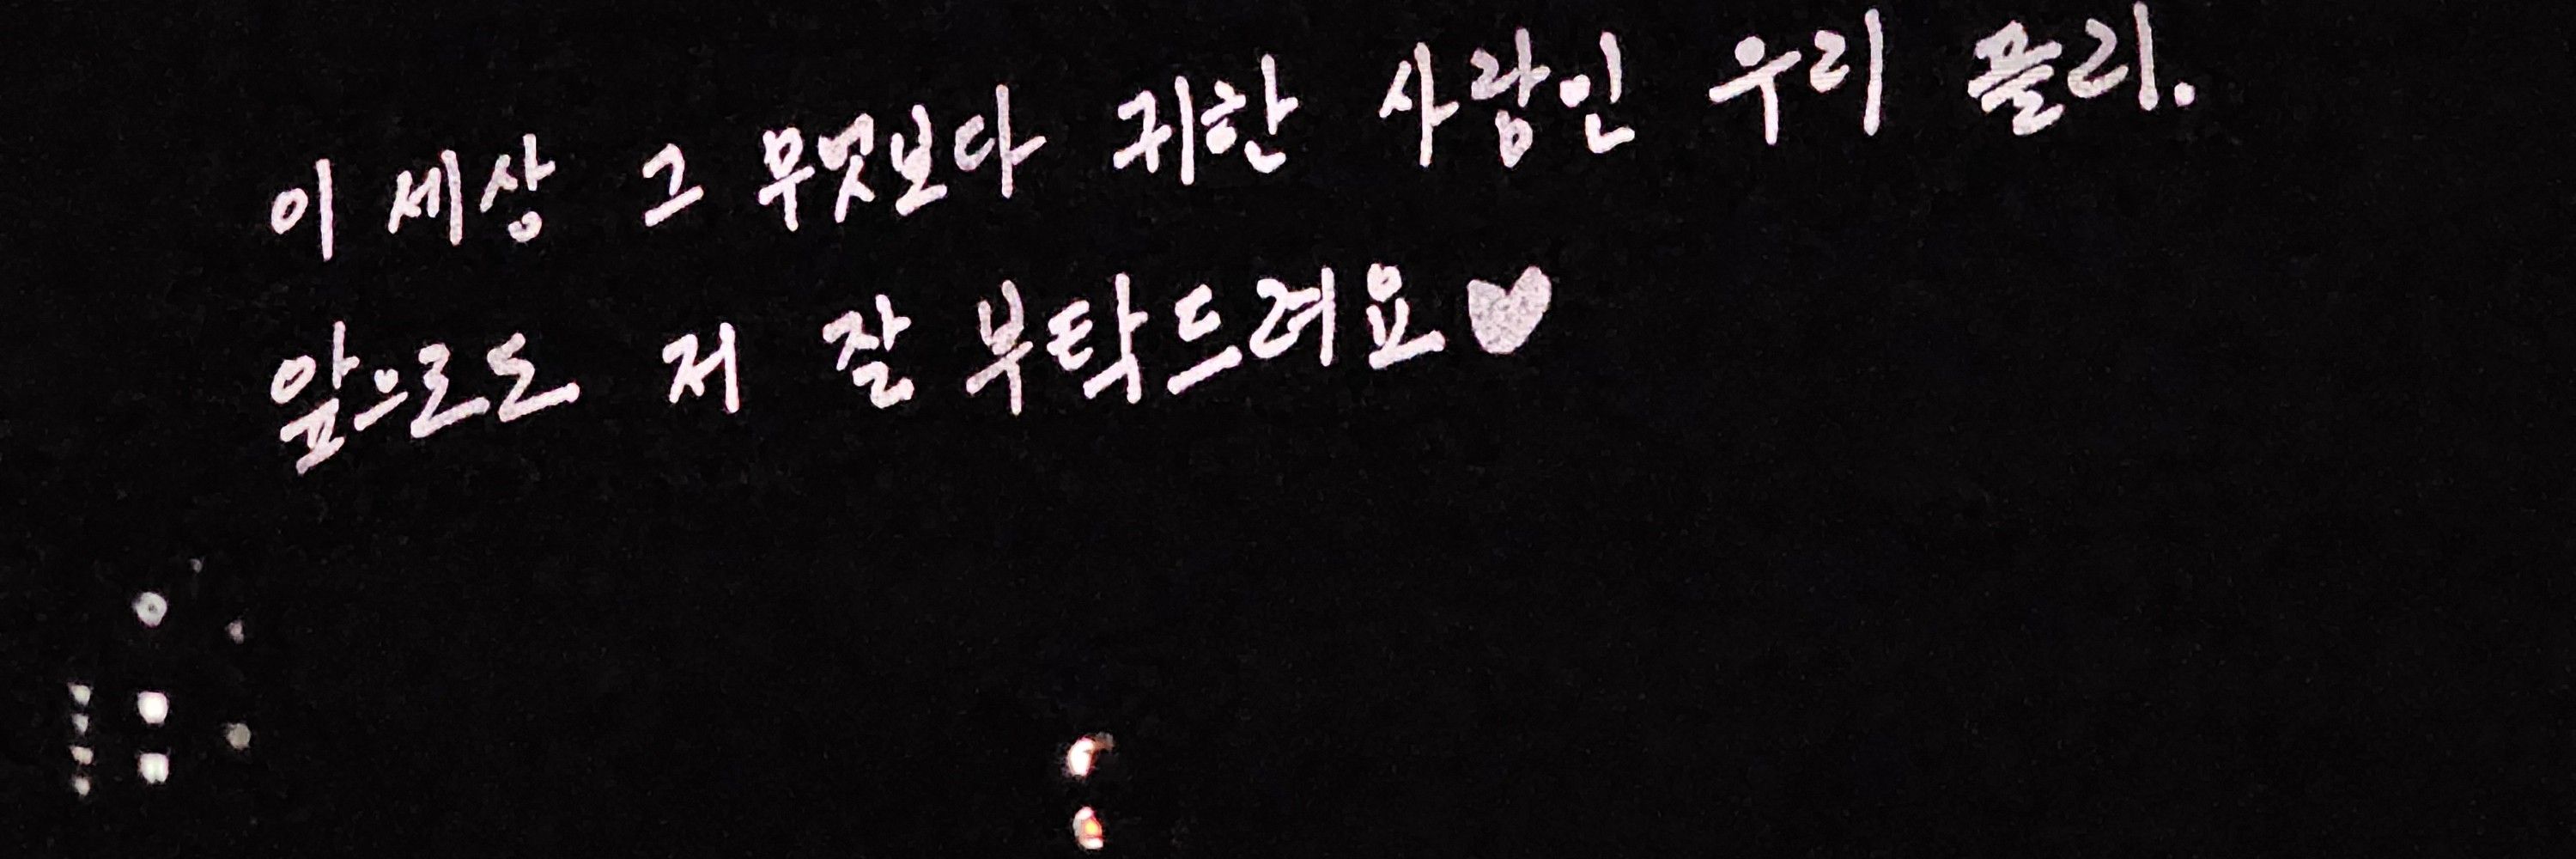 이 세상 그 무엇보다 귀한 사랑인 우리 플리.
앞으로도 저 잘 부탁드려요♥